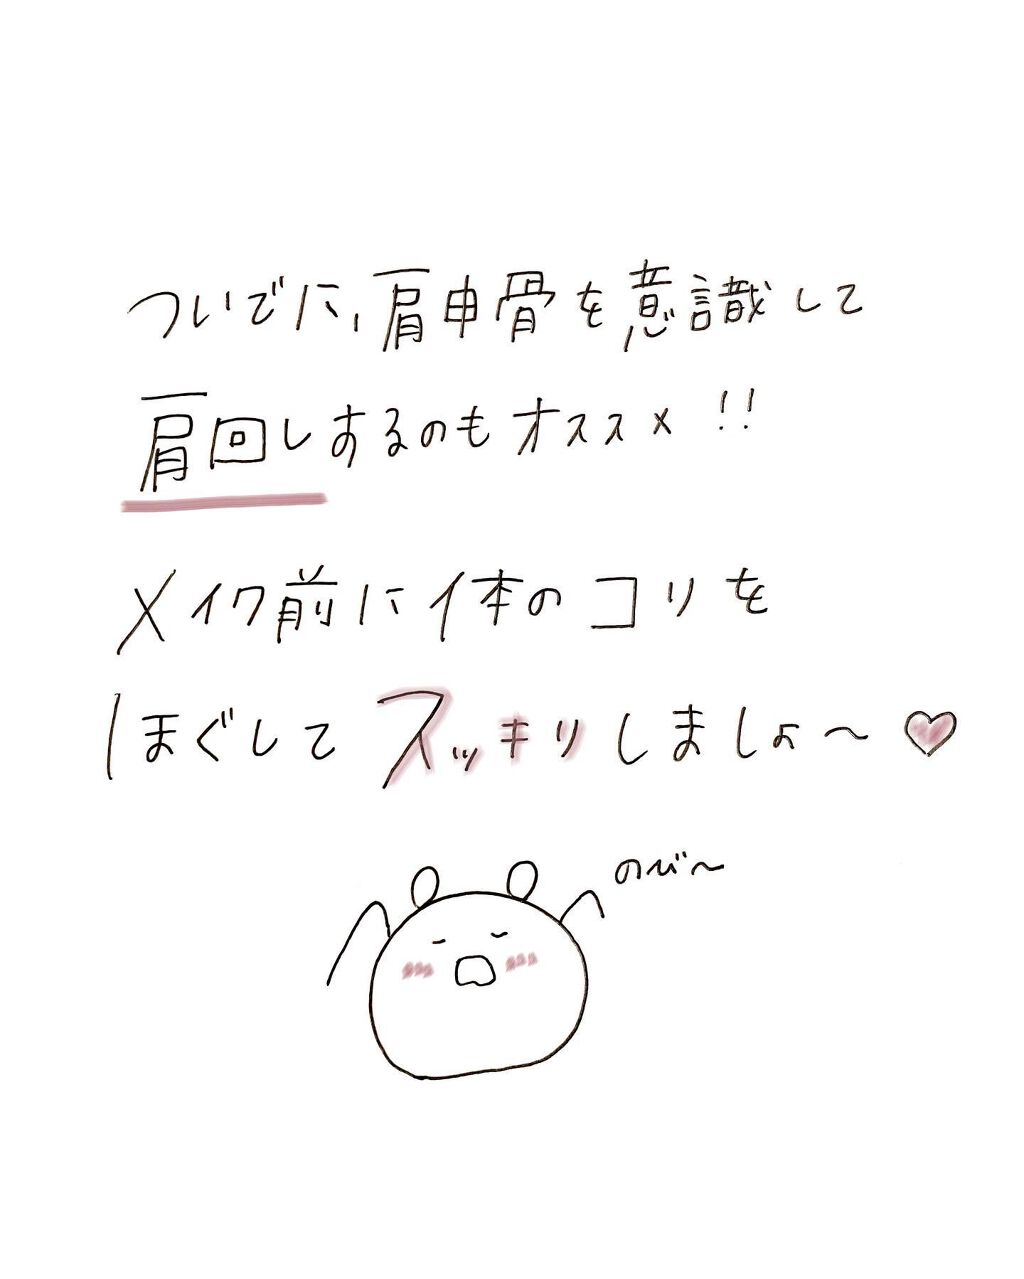 ついでに、肩申骨を意識して
肩回しするのもオススメ!!
メイク前に体のコリを
ほぐしてスッキリしましょ〜♡
のび〜